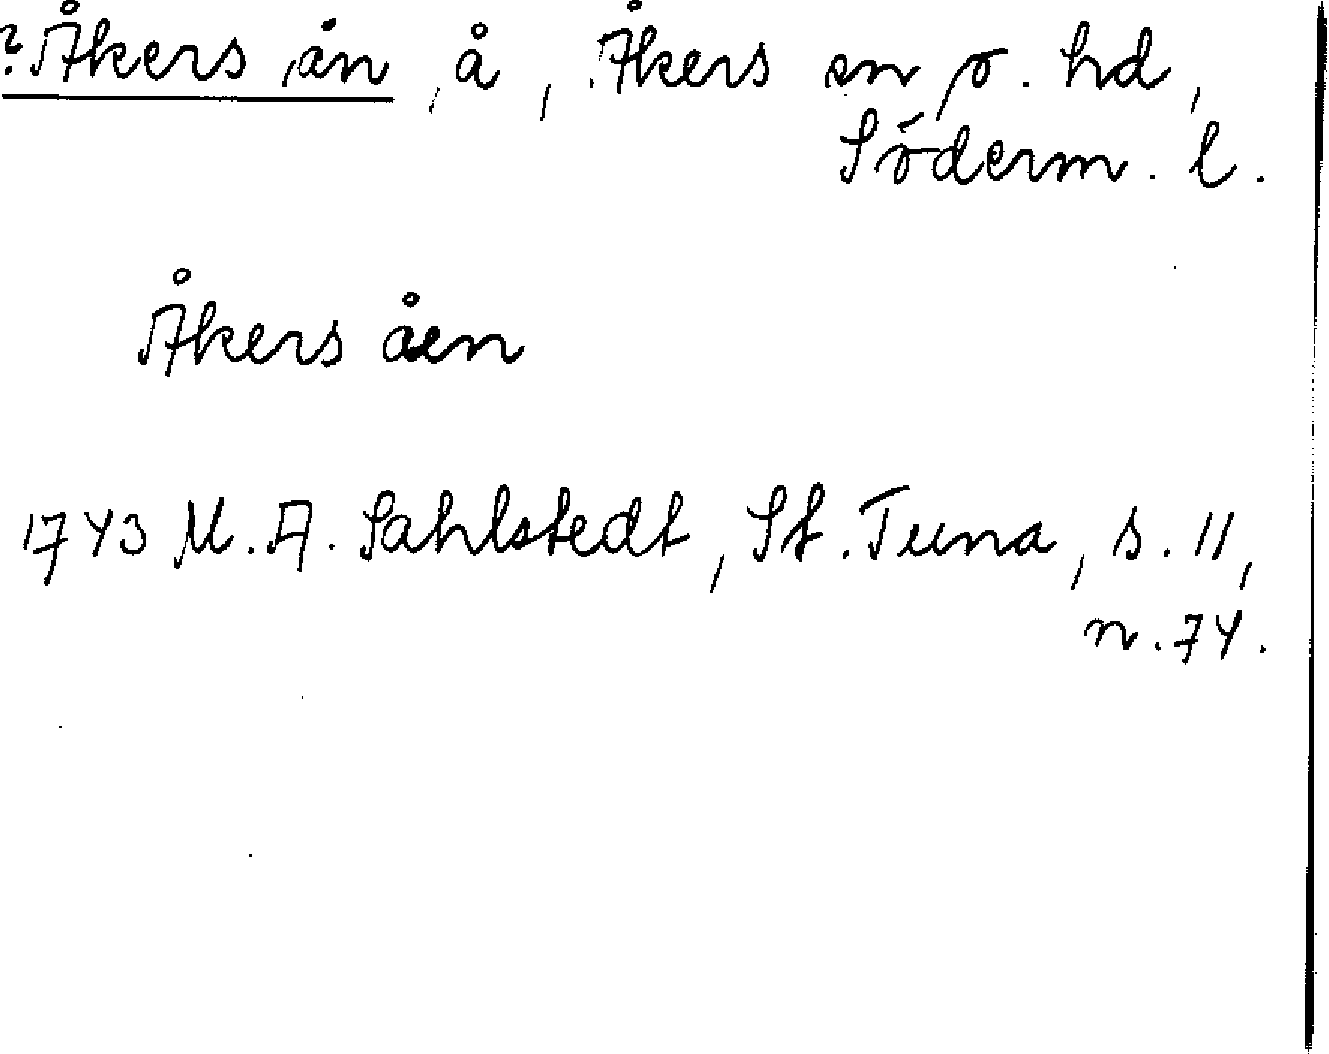 ? Åkers ån, å, Åkers sn o. hd,
Söderm. l.
Åkers åen
1743 M. A. Sahlstedt, St. Tuna, s. 11,
n. 74.